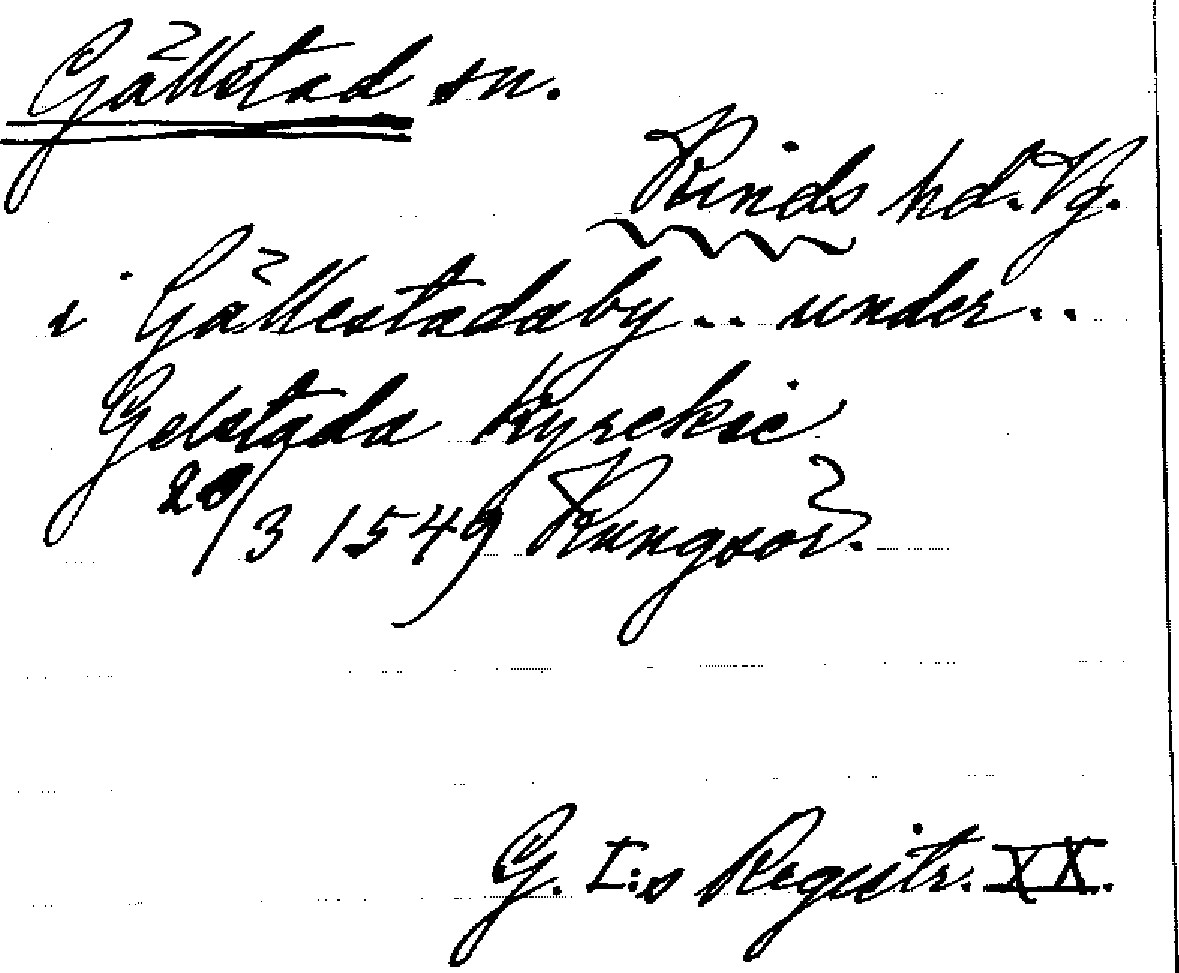 Gällstad sn.
Kinds hd. Vg.
i Gällestadaby .. under ..
Gelstada kyrckie
20/3 1549 Kungsör.
G. I:s Registr. XX.